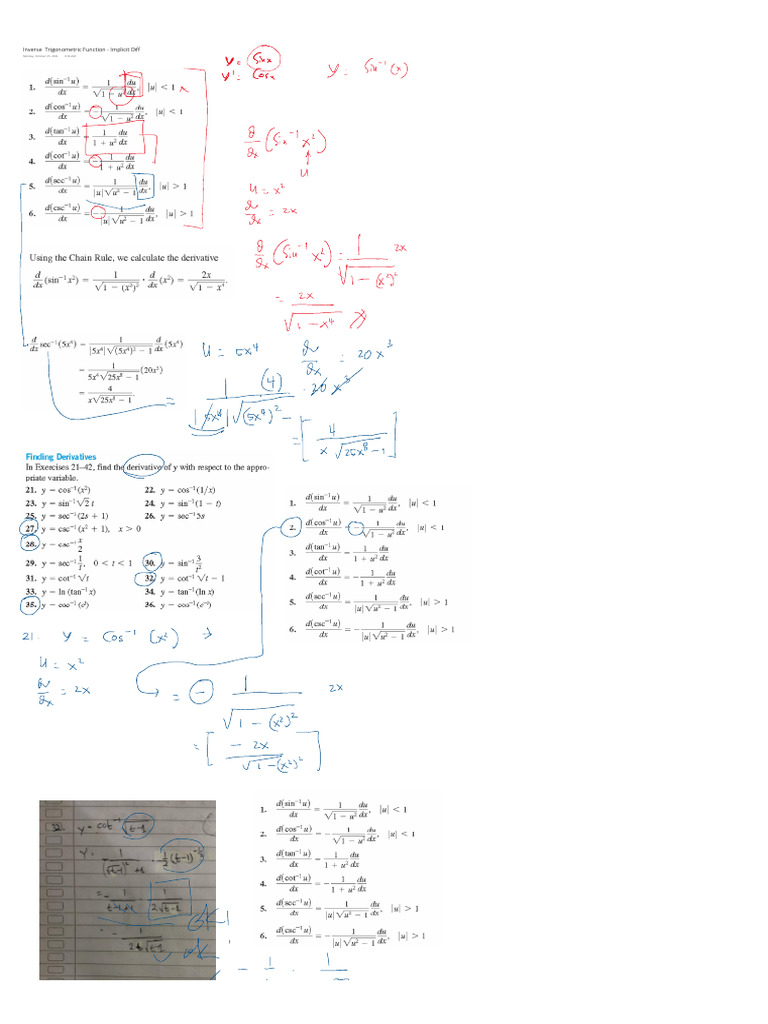 Inverse Trigonometric Function - Implicit Diff
y = Sinx
y' = Cosx
y = Sin⁻¹(x)
1. d(sin⁻¹ u)/dx = 1/√(1 − u²) du/dx, |u| < 1
2. d(cos⁻¹ u)/dx = −1/√(1 − u²) du/dx, |u| < 1
3. d(tan⁻¹ u)/dx = 1/(1 + u²) du/dx
4. d(cot⁻¹ u)/dx = −1/(1 + u²) du/dx
5. d(sec⁻¹ u)/dx = 1/(|u|√(u² − 1)) du/dx, |u| > 1
6. d(csc⁻¹ u)/dx = −1/(|u|√(u² − 1)) du/dx, |u| > 1
∂/∂x (Sin⁻¹ x²)
u
u = x²
∂u/∂x = 2x
Using the Chain Rule, we calculate the derivative
d/dx (sin⁻¹ x²) = 1/√(1 − (x²)²) · d/dx (x²) = 2x/√(1 − x⁴).
∂/∂x (Sin⁻¹ x²) = 1/√(1 − (x²)²) 2x
= 2x/√(1 − x⁴)
d/dx sec⁻¹ (5x⁴) = 1/(|5x⁴|√((5x⁴)² − 1)) d/dx (5x⁴)
= 1/(5x⁴√(25x⁸ − 1)) (20x³)
= 4/(x√(25x⁸ − 1)).
u = 5x⁴
∂u/∂x = 20x³
= 1 (4)/(|5x⁴|√((5x⁴)² − · 20x³
= [4/(x√(25x⁸ − 1))]
Finding Derivatives
In Exercises 21–42, find the derivative of y with respect to the appro-
priate variable.
21. y = cos⁻¹ (x²) 22. y = cos⁻¹ (1/x)
23. y = sin⁻¹ √2 t 24. y = sin⁻¹ (1 − t)
25. y = sec⁻¹ (2s + 1) 26. y = sec⁻¹ 5s
27. y = csc⁻¹ (x² + 1), x > 0
28. y = csc⁻¹ x/2
29. y = sec⁻¹ 1/t, 0 < t < 1 30. y = sin⁻¹ 3/t²
31. y = cot⁻¹ √t 32. y = cot⁻¹ √(t − 1)
33. y = ln (tan⁻¹ x) 34. y = tan⁻¹ (ln x)
35. y = csc⁻¹ (eᵗ) 36. y = cos⁻¹ (e⁻ᵗ)
1. d(sin⁻¹ u)/dx = 1/√(1 − u²) du/dx, |u| < 1
2. d(cos⁻¹ u)/dx = −1/√(1 − u²) du/dx, |u| < 1
3. d(tan⁻¹ u)/dx = 1/(1 + u²) du/dx
4. d(cot⁻¹ u)/dx = −1/(1 + u²) du/dx
5. d(sec⁻¹ u)/dx = 1/(|u|√(u² − 1)) du/dx, |u| > 1
6. d(csc⁻¹ u)/dx = −1/(|u|√(u² − 1)) du/dx, |u| > 1
21. y = Cos⁻¹ (x²) →
u = x²
∂u/∂x = 2x
= − 1/√(1 − (x²)²) 2x
= [−2x/√(1 − (x²)²)]
32. y = cot⁻¹ √(t-1)
· ½(t-1)
· 1/(2√(t-1))
= − 1/(2t√(t-1))
1. d(sin⁻¹ u)/dx = 1/√(1 − u²) du/dx, |u| < 1
2. d(cos⁻¹ u)/dx = −1/√(1 − u²) du/dx, |u| < 1
3. d(tan⁻¹ u)/dx = 1/(1 + u²) du/dx
4. d(cot⁻¹ u)/dx = −1/(1 + u²) du/dx
5. d(sec⁻¹ u)/dx = 1/(|u|√(u² − 1)) du/dx, |u| > 1
6. d(csc⁻¹ u)/dx = −1/(|u|√(u² − 1)) du/dx, |u| > 1